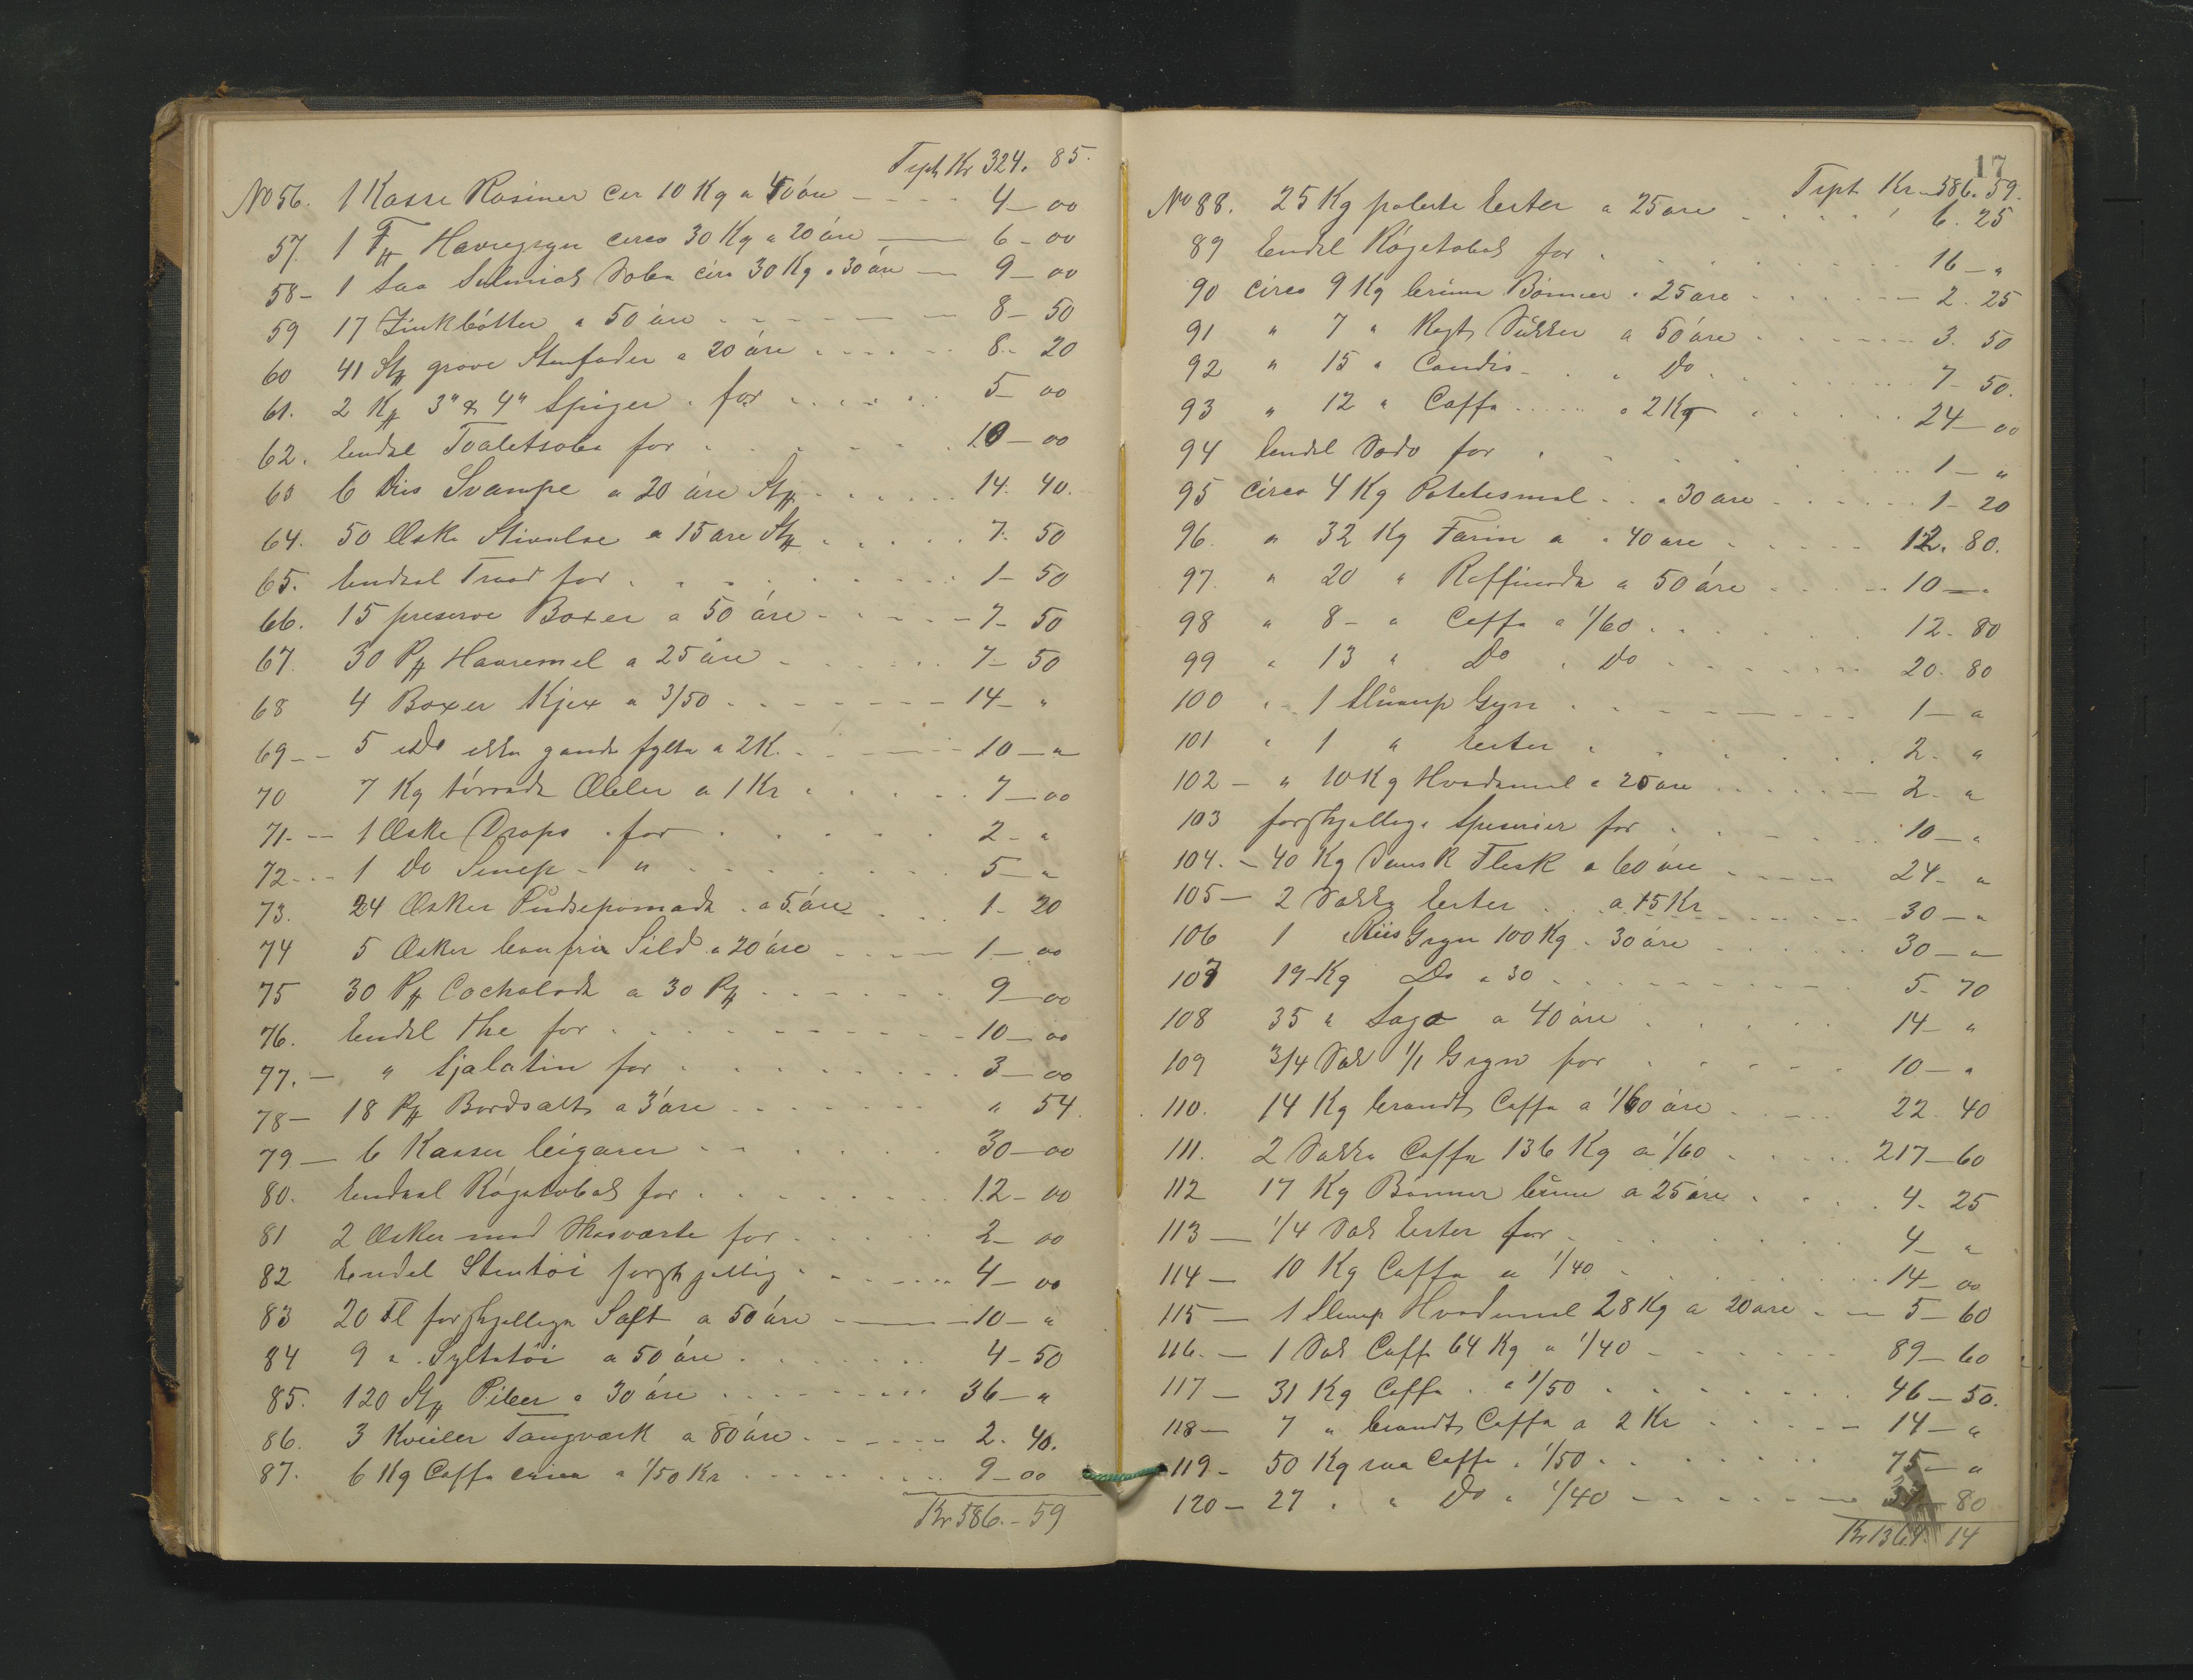 Trpt Kr 324. 85.
No 56. 1 Kasse Rosiner cir 10 Kg a 40 øre 4-00
57. 1 Havregryn circa 30 Kg a 20 øre 6-00
58- 1 Salmiak Sæbe circ 30 Kg a 30 øre 9-00
59 17 Zinkbøtter a 50 øre 8-50
60 41 Stk grove Stenfader a 20 øre 8-20
61. 2 Kg 3" & 4" Spiger for 5-00
62. Endel Toaletsæbe for 10-00
63 6 Dus Svampe a 20 øre Stk 14. 40.
64. 50 Æske Stivelse a 15 øre Stk 7. 50
65. Endel Traad for 1-50
66. 15 preserve Boxer a 50 øre 7-50
67. 30 Pk Havremel a 25 øre 7-50
68 4 Boxer Kjex a 3/50 14-"
69-- 5 Do ikke ganske fylte a 2 K. 10-"
70 7 Kg tørrede Æbler a 1 Kr 7-00
71.-- 1 Æske Drops for 2-"
72--- 1 Do Senep " 5-"
73. 24 Æsker Pudsepomade a 5 øre 1-20
74 5 Æsker benfrie Sild a 20 øre 1-00
75 30 Pk Cochelade a 30 Pk 9-00
76. Endel The for 10-00
77.- " Sjalatin for 3-00
78- 18 Pk Bordsalt a 3 øre " 54.
79- 6 Kasser Cigarer 30-00
80. Endeel Røgetobak for 12-00
81 2 Æsker med Skosværte for 2-00
82 Endel Stentøi forskjellig 4-00
83 20 Fl forskjellige Saft a 50 øre 10-"
84 9 " Syltetøi a 50 øre 4-50
85. 120 Stk Piber a 30 øre 36-"
86. 3 Kveiler Tougværk a 80 øre 2. 40.
87. 6 Kg Caffe a 1/50 Kr 9-00
Kr 586.-59
17
Trpt Kr-586.59.
No 88. 25 Kg polerte Erter a 25 øre 6. 25
89 Endel Røgetobak for 16-"
90 circa 9 Kg brune Bønner a 25 øre 2. 25
91 " 7 " Sukker a 50 øre 3. 50
92 " 15 " Candis " Do 7-50.
93 " 12 " Caffe a 2 Kr 24-00
94 Endel Soda for 1-"
95 circa 4 Kg Potetesmel a 30 øre 1-20
96. " 32 Kg Farin a 40 øre 12. 80.
97. " 20 " Raffinade a 50 øre 10-"
98 " 8- " Caffe a 1/60 12-80
99 " 13 " Do " Do 20. 80
100 " 1 Slump Gryn 1-"
101 " 1 " Erter 2. "
102- " 10 Kg Hvedemel a 20 øre 2-"
103 forskjellige Speserier for 10-"
104.- 40 Kg Dansk Flesk a 60 øre 24-"
105- 2 Sække Erter a 15 Kr 30-"
106 1 Riis Gryn 100 Kg a 30 øre 30-"
107 19 Kg Do a 30 5-70
108 35 " Sago a 40 øre 14-"
109 3/4 Sæk 1/1 Gryn for 10-"
110. 14 Kg brendt Caffe a 1/60 øre 22. 40
111. 2 Sække Caffe 136 Kg a 1/60 217-60
112 17 Kg Bønner brune a 25 øre 4-25
113- 1/4 Sæk Erter for 4-"
114- 10 Kg Caffe a 1/40 14-00
115- 1 Slump Hvedemel 28 Kg a 20 øre 5-60
116.- 1 Sæk Caffe 64 Kg a 1/40 89-60
117- 31 Kg Caffe a 1/50 46-50.
118- 7 " brendt Caffe a 2 Kr 14-"
119- 50 Kg raa Caffe a 1/50 75-"
120- 27 " " Do a 1/40 37-80
Kr 1364. 14